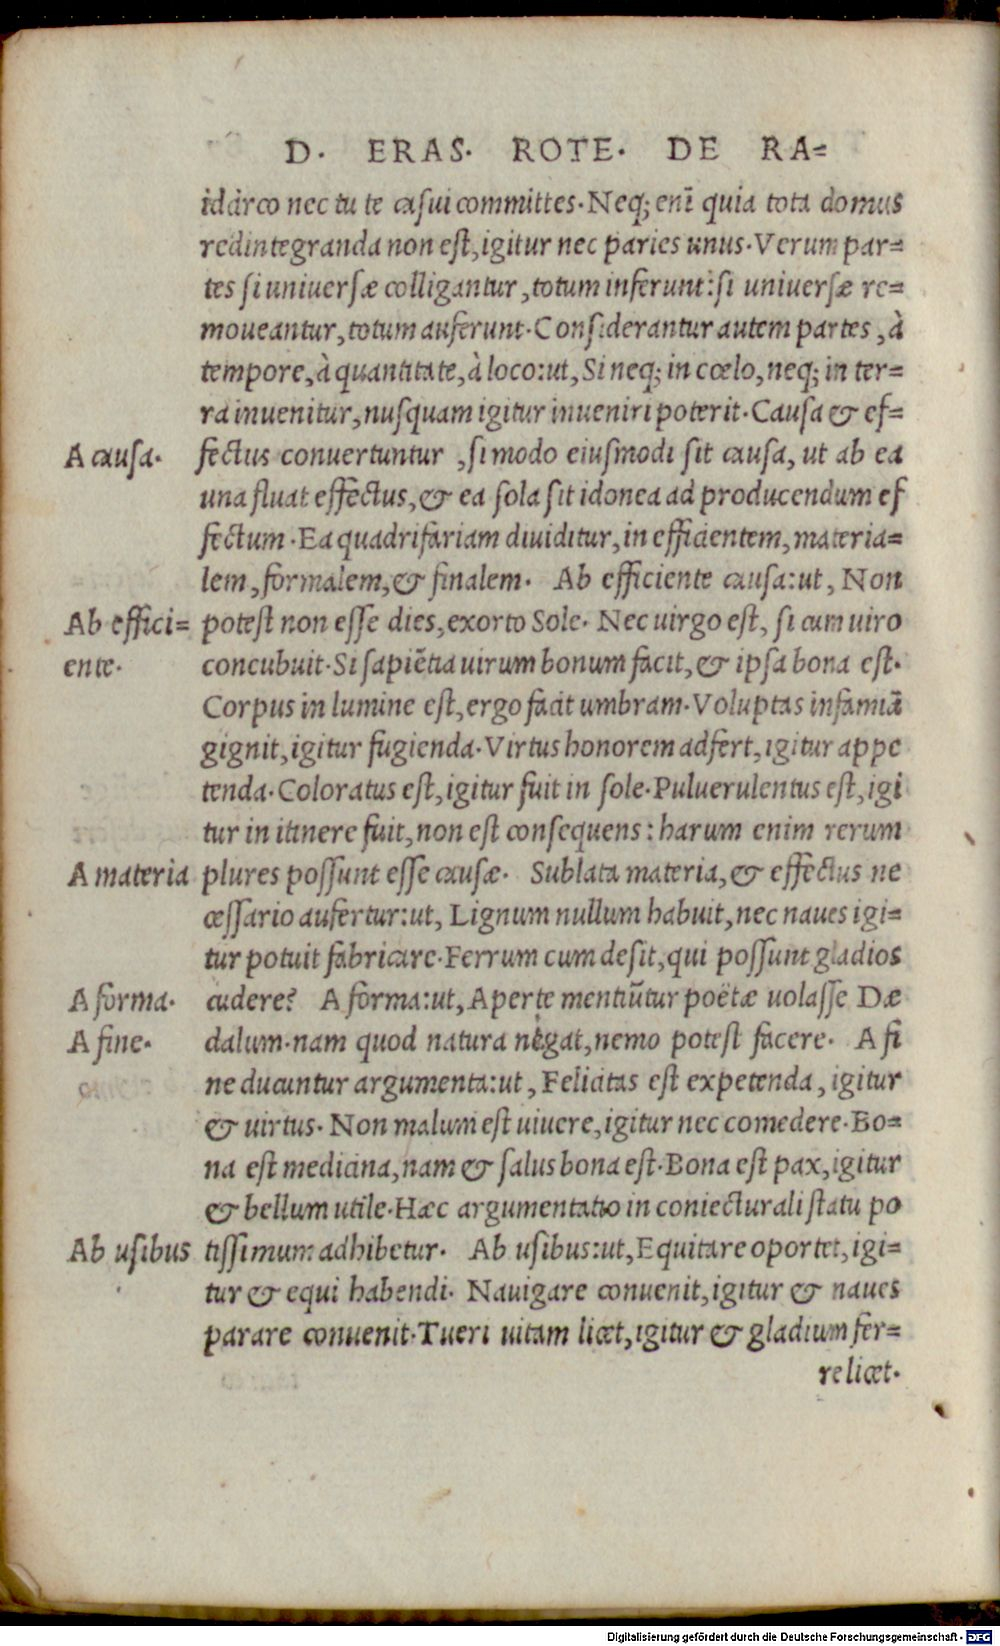 D. ERAS. ROTE. DE RA=
idcirco nec tu te casui committes. Neq; enī quia tota domus
redintegranda non est, igitur nec paries unus. Verum par=
tes si universæ colligantur, totum inferunt: si universæ re=
moveantur, totum auferunt. Considerantur autem partes, à
tempore, à quantitate, à loco: ut, Si neq; in cœlo, neq; in ter=
ra invenitur, nusquam igitur inveniri poterit. Causa & ef=
A causa.
fectus convertuntur, si modo eiusmodi sit causa, ut ab ea
una fluat effectus, & ea sola sit idonea ad producendum ef
fectum. Ea quadrifariam dividitur, in efficientem, materia=
lem, formalem, & finalem. Ab efficiente causa: ut, Non
Ab effici=
potest non esse dies, exorto Sole. Nec uirgo est, si cum uiro
ente.
concubuit. Si sapiētia uirum bonum facit, & ipsa bona est.
Corpus in lumine est, ergo facit umbram. Voluptas infamiā
gignit, igitur fugienda. Virtus honorem adfert, igitur appe
tenda. Coloratus est, igitur fuit in sole. Puluerulentus est, igi
tur in itinere fuit, non est consequens: harum enim rerum
A materia
plures possunt esse causæ. Sublata materia, & effectus ne
cessario aufertur: ut, Lignum nullum habuit, nec naues igi=
tur potuit fabricare. Ferrum cum desit, qui possunt gladios
A forma.
cudere? A forma: ut, Aperte mentiūtur poëtæ uolasse Dæ
A fine.
dalum. nam quod natura negat, nemo potest facere. A fi
ne ducuntur argumenta: ut, Felicitas est expetenda, igitur
& uirtus. Non malum est uiuere, igitur nec comedere. Bo=
na est medicina, nam & salus bona est. Bona est pax, igitur
& bellum utile. Hæc argumentatio in coniecturali statu po
Ab usibus
tissimum adhibetur. Ab usibus: ut, Equitare oportet, igi=
tur & equi habendi. Nauigare conuenit, igitur & naues
parare conuenit. Tueri uitam licet, igitur & gladium fer=
re licet.
Digitalisierung gefördert durch die Deutsche Forschungsgemeinschaft - DFG